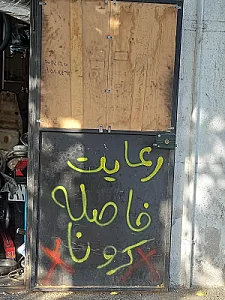 رعایت
خاصله
کرونا